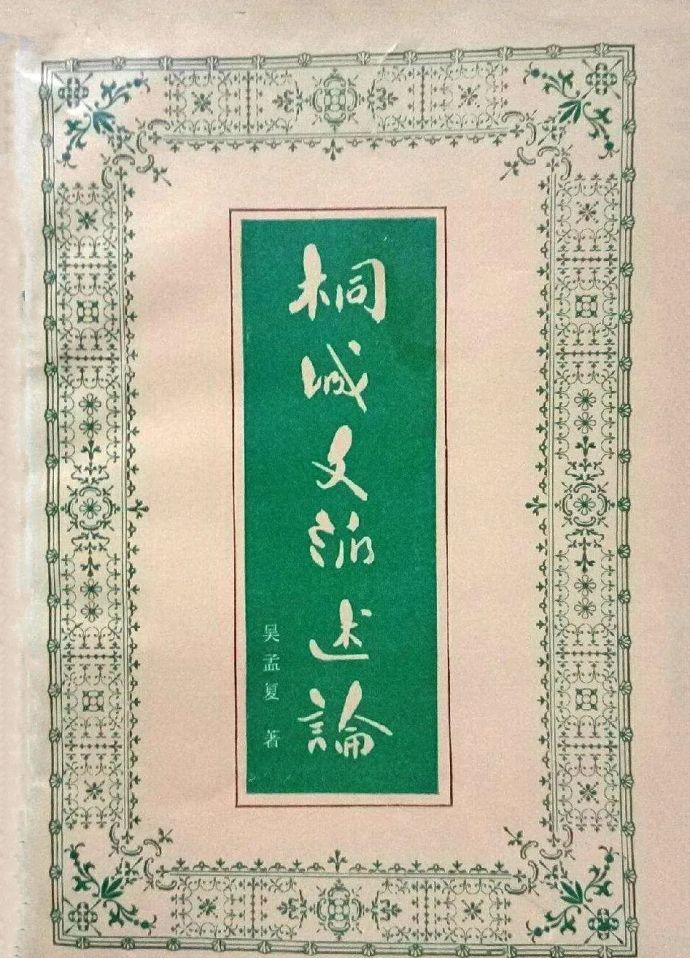 桐城文派述論
吴孟复 著